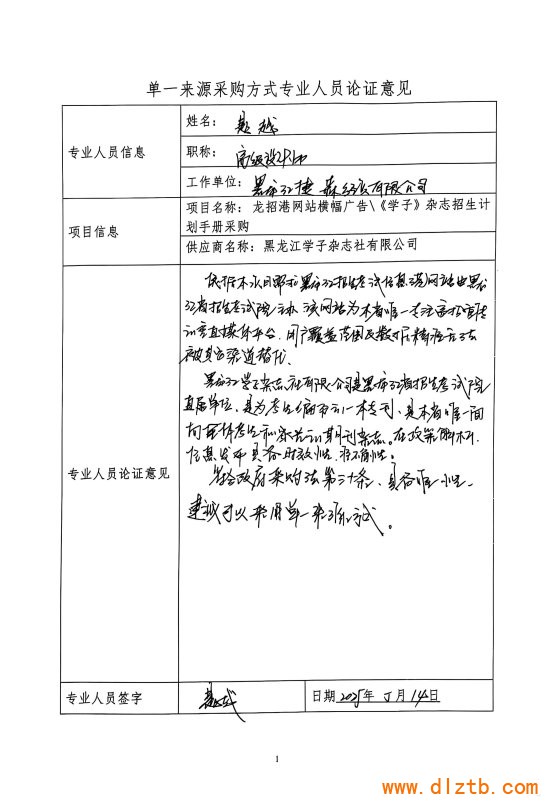 单一来源采购方式专业人员论证意见
专业人员信息
姓名：
职称：高级设计师
工作单位：黑龙江捷 经贸有限公司
项目信息
项目名称：龙招港网站横幅广告\《学子》杂志招生计
划手册采购
供应商名称：黑龙江学子杂志社有限公司
专业人员论证意见
依据本次目 黑龙江招生考试信息港网站由黑龙
江省招生考试院主办 该网站为本省唯一
平台，用户覆盖范围及数据精准 无法
被其它渠道替代。
黑龙江学子杂志社有限公司是黑龙江省招生考试院
直属单位，是为考生 一本专刊，是本省唯一面
向 考生和家长 期刊杂志。在政策解析、
信息发布具备时效性、准确性。
符合政府采购法第三十条，具备唯一性，
建议可以采用单一来源方式。
专业人员签字
日期 2025年 5月 14日
1
www.dlztb.com